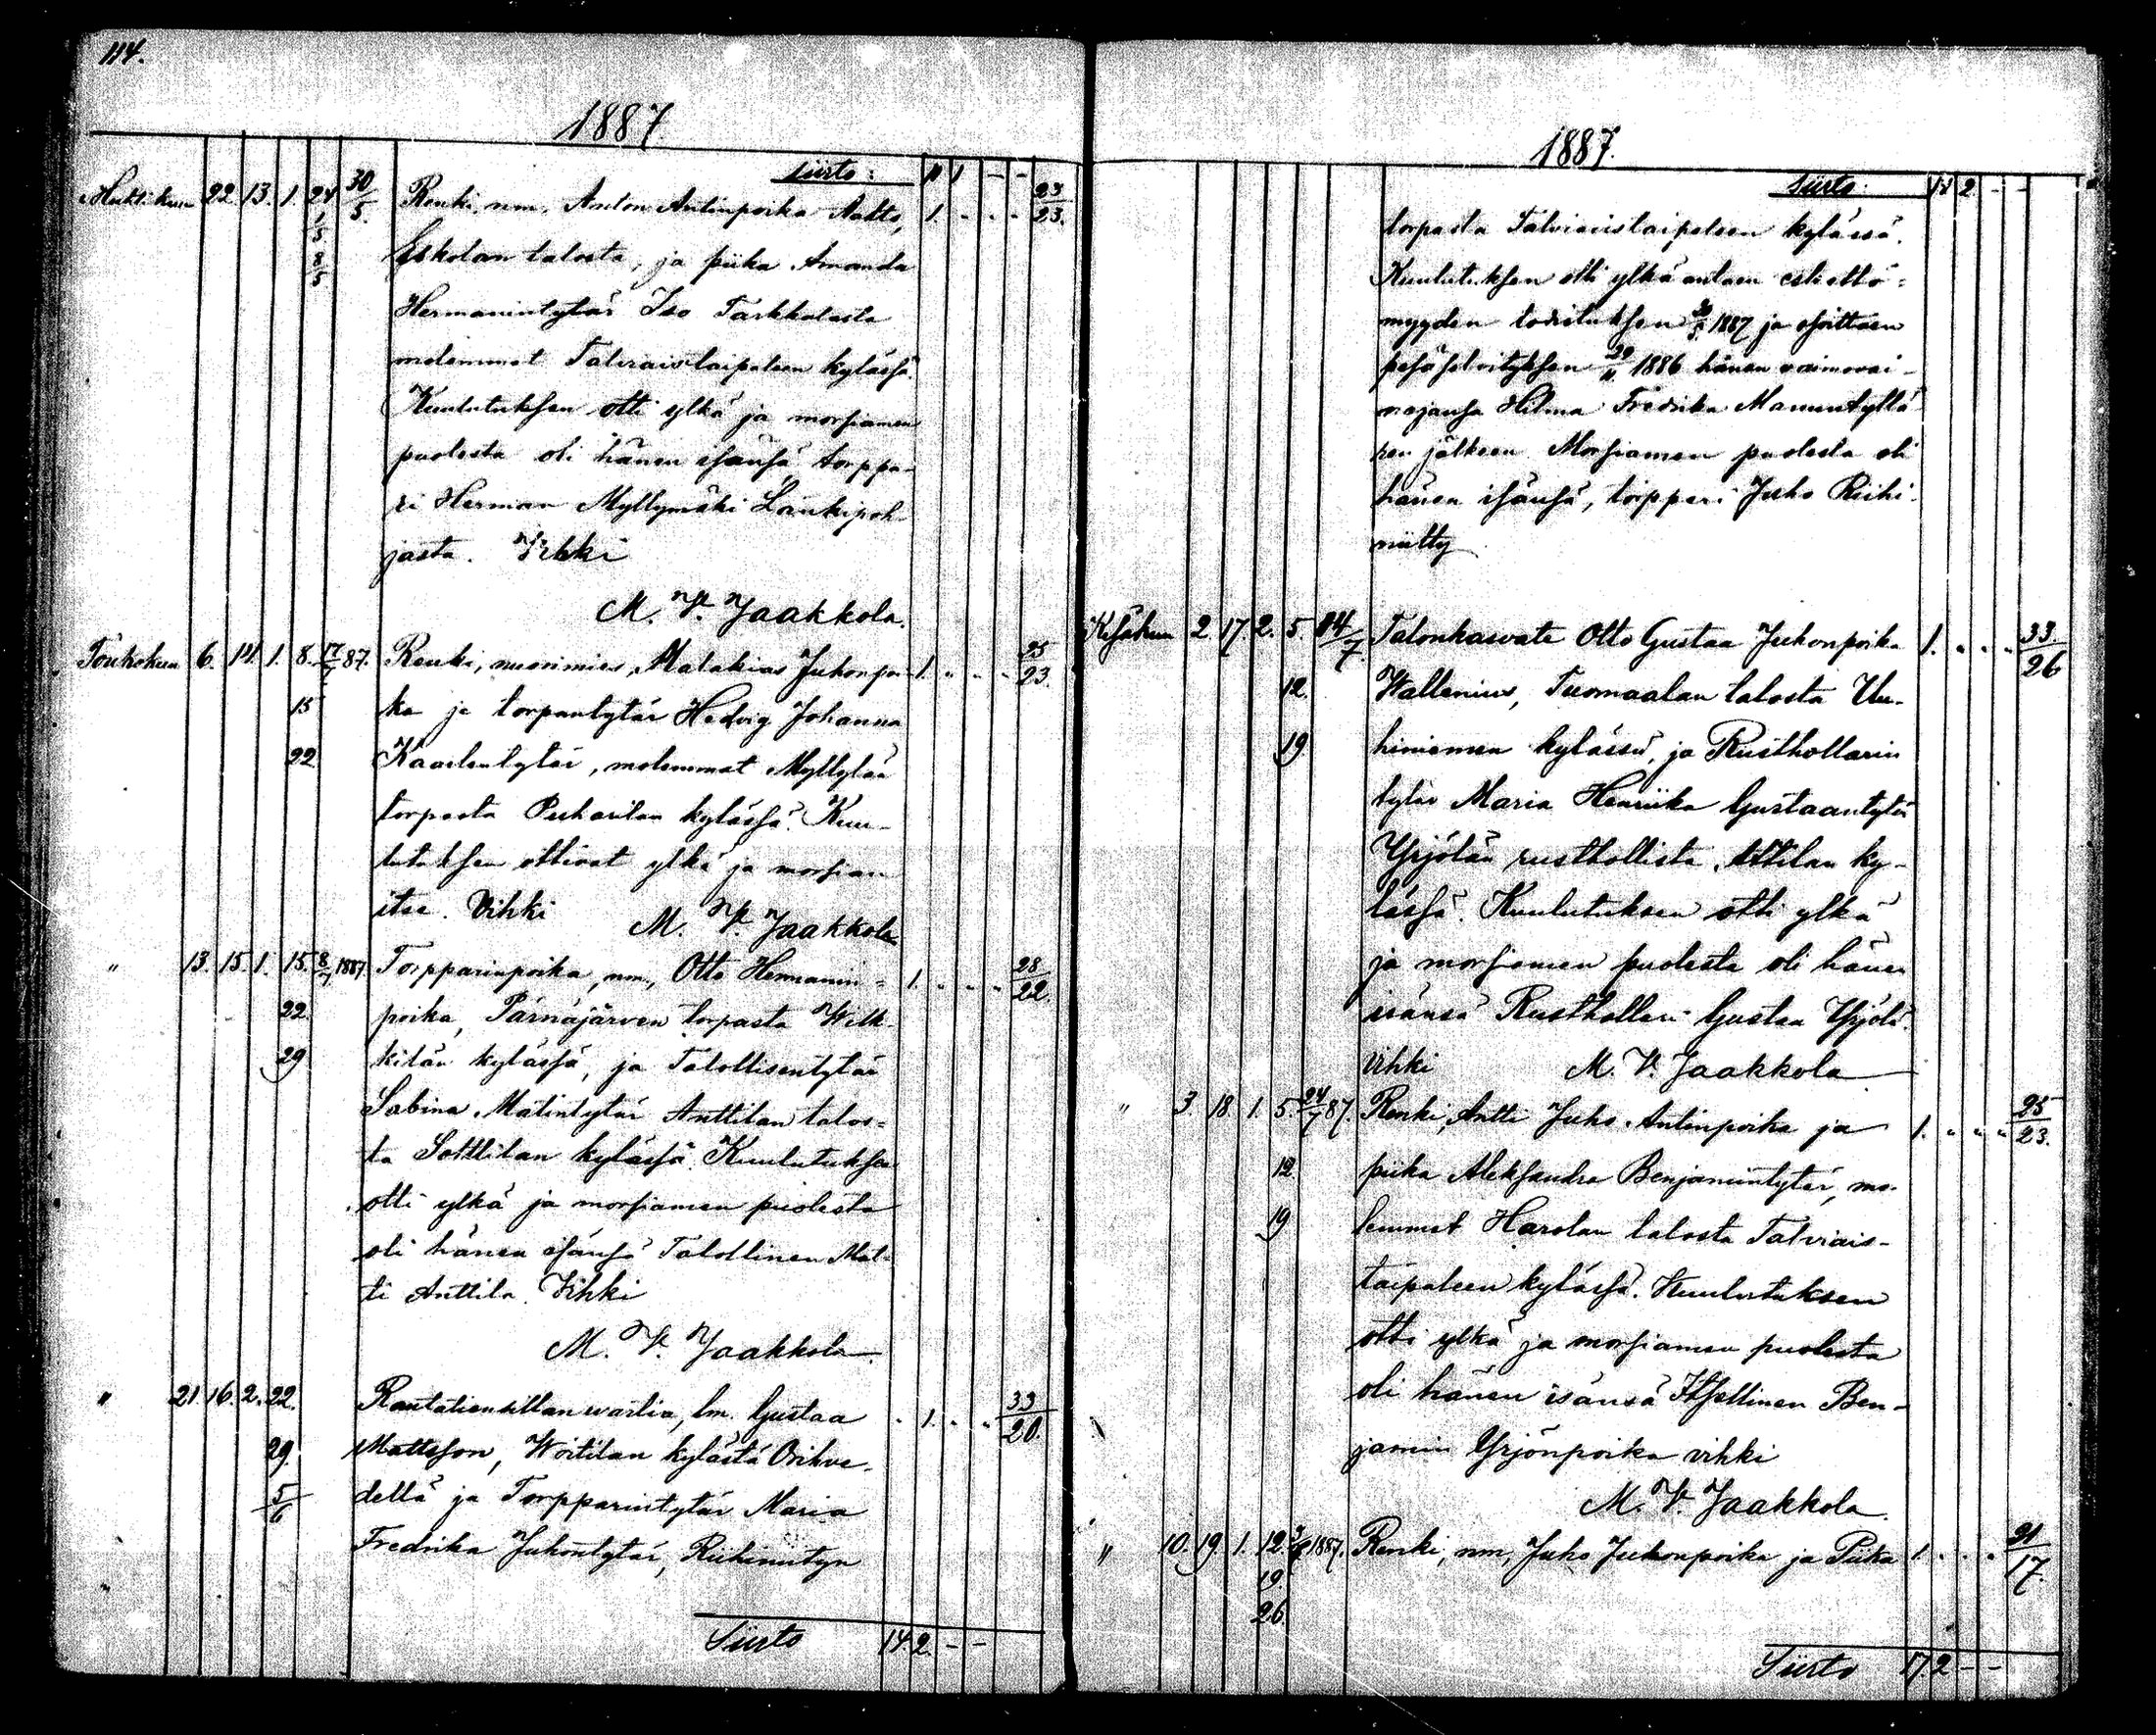 114.
1887.
Siirto: 11 1 - -
Huhtikuun 22. 13. 1. 24 30/5. Renki, nm. Anton Antinpoika Aahto, 1. " " " 23/23.
1/5 Eskolan talosta, ja piika Amanda
8/5 Hermanintytär Iso Tarkkalasta
molemmat Talviaistaipaleen kylässä.
Kuulutuksen otti ylkä ja morsiamen
puolesta oli hänen isänsä torppa-
ri Herman Myllymäki Länkipoh-
jasta. Vihki
M. V. Jaakkola.
Toukokuun 6. 14. 1. 8. 87. Renki, nuorimies, Malakias Juhonpoi- 1. " " " 25/23.
15 ka ja torpantytär Hedvig Johanna
22 Kaarlentytär, molemmat Myllylän
torpasta Puharilan kylässä. Kuu-
lutuksen ottivat ylkä ja morsian
itse. Vihki M. V. Jaakkola
" 13. 15. 1. 15. 8/7 1887 Torpparinpoika, nm., Otto Hermanin= 1. " " " 28/22.
22. poika, Pärnäjärven torpasta Wilk-
29 kilän kylässä, ja Talollisentytär
Sabina Matintytär Anttilan talos=
ta Sottilan kylässä. Kuulutuksen
otti ylkä ja morsiamen puolesta
oli hänen isänsä Talollinen Mat-
ti Anttila. Vihki
M. V. Jaakkola.
" 21. 16. 2. 22. Rautatiensillanvartia, lm. Gustaa " 1. " " 33/20.
29. Mattsson, Woitilan kylästä Orihve-
5/6 dellä ja Torpparintytär Maria
Fredrika Juhontytär, Riihiniityn
Siirto 14 2. - -
1887.
Siirto: 14 2. - -
torpasta Talviaistaipaleen kylässä.
Kuulutuksen otti ylkä antaen esteettö=
myyden todistuksen 1887 ja osoittaen
pesäselvityksen 29/11 1886 hänen vaimovai-
najansa Hilma Fredrika Manuntyttä-
ren jälkeen. Morsiamen puolesta oli
hänen isänsä, torppari Juho Riihi-
niitty
Kesäkuun 2. 17 2. 5. 14/7 Talonkasvate Otto Gustaa Juhonpoika 1. " " " 33./26
12. Wallenius, Tuomaalan talosta Uu-
19. hiniemen kylässä, ja Rusthollarin
tytär Maria Henriika Gustaantytär
Yrjölän rusthollista, Attilan ky-
lässä. Kuulutuksen otti ylkä
ja morsiamen puolesta oli hänen
isänsä Rusthollari Gustaa Yrjölä.
Vihki M. V. Jaakkola
" 3. 18. 1. 5. 24/7 87. Renki, Antti Juho Antinpoika ja 1. " " " 25/23.
12 piika Aleksandra Benjamintytär, mo-
19 lemmat Harolan talosta Talviais-
taipaleen kylässä. Kuulutuksen
otti ylkä ja morsiamen puolesta
oli hänen isänsä Itsellinen Ben-
jamin Yrjönpoika vihki
M. V. Jaakkola.
" 10. 19. 1. 12. 1887. Renki, nm, Juho Juhonpoika ja Piika 1. " " " 21/17.
19.
26.
Siirto 17. 2 - -